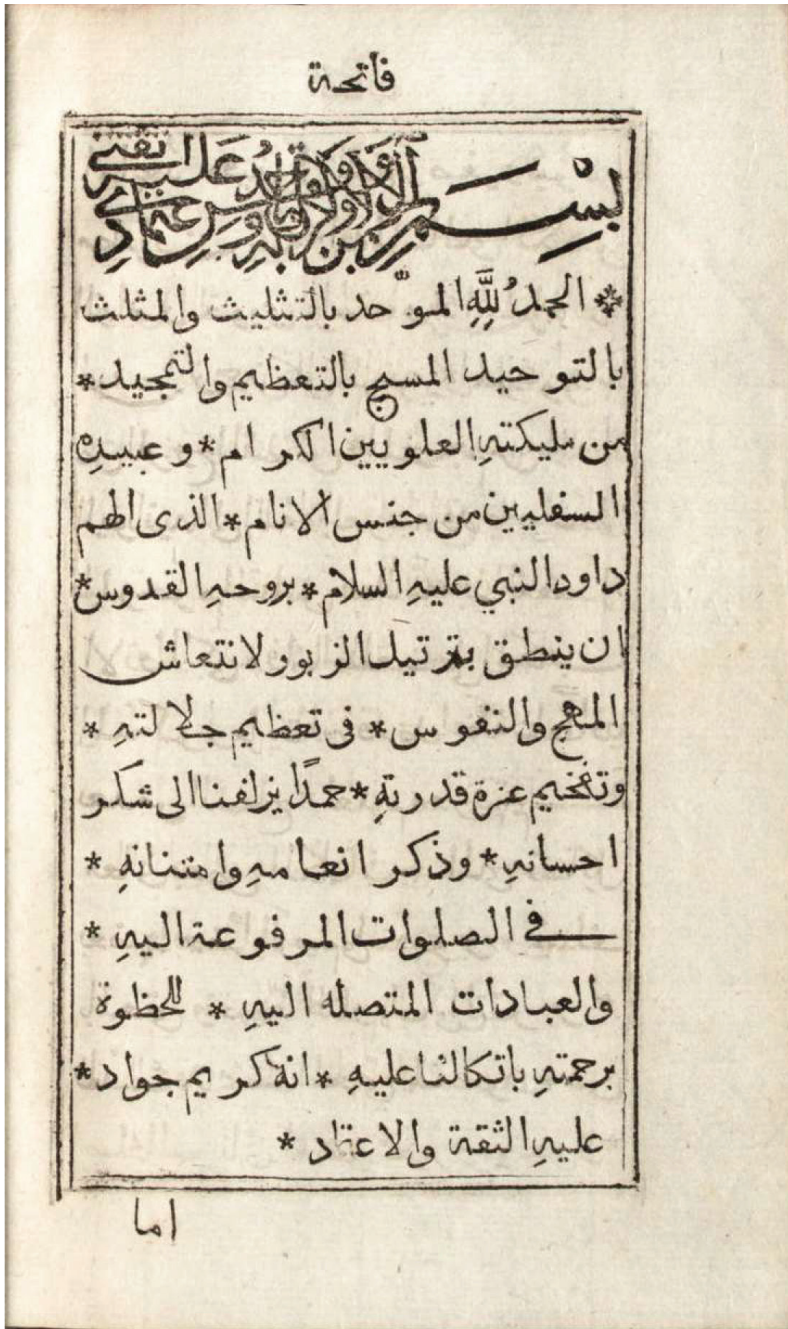 فاتحة
بِسْمِ
* الحمدُ لِلّٰهِ الموّحد بالتثليث والمثلث
بالتوحيد المسبح بالتعظيم والتمجيد *
من مليكتهِ العلويين الكرام * وعبيدِه
السفليين من جنس الانام * الذى الهم
داود النبي عليهِ السلام * بروحهِ القدوس *
ان ينطق بترتيل الزبور لانتعاش
المهج والنفوس * فى تعظيم جلالتهِ *
وتفخيم عزة قدرتهِ * حمدًا يزلفنا الى شكر
احسانهِ * وذكر انعامهِ وامتنانهِ *
فى الصلوات المرفوعة اليهِ *
والعبادات المتصله اليهِ * للحظوة
برحمتهِ باتكالنا عليهِ * انهُ كريم جواد *
عليهِ الثقة والاعتماد *
اما